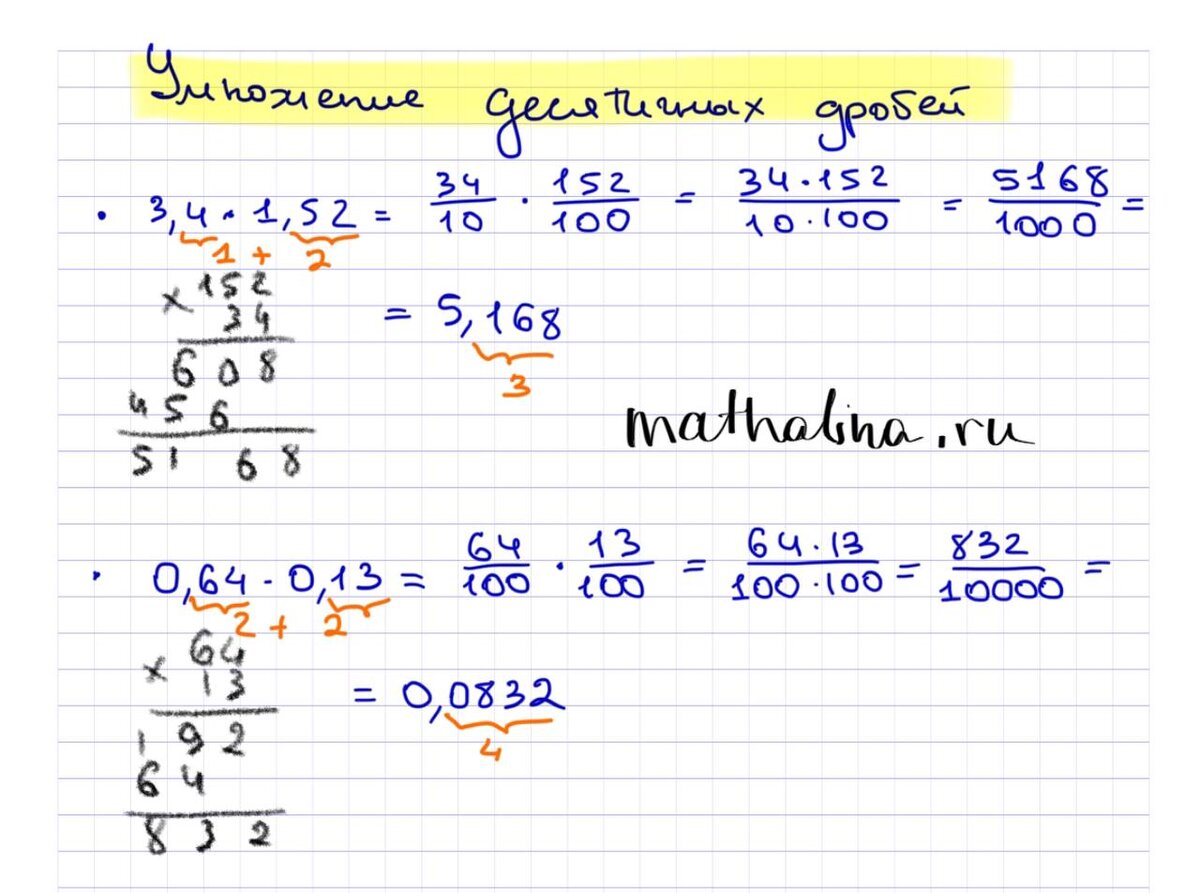 Умножение десятичных дробей
• 3,4 · 1,52 = 34/10 · 152/100 = 34·152/10·100 = 5168/1000 =
1 + 2
× 152
34
= 5,168
608
3
456
mathalina.ru
5168
• 0,64 · 0,13 = 64/100 · 13/100 = 64·13/100·100 = 832/10000 =
2 + 2
× 64
13
= 0,0832
192
4
64
832